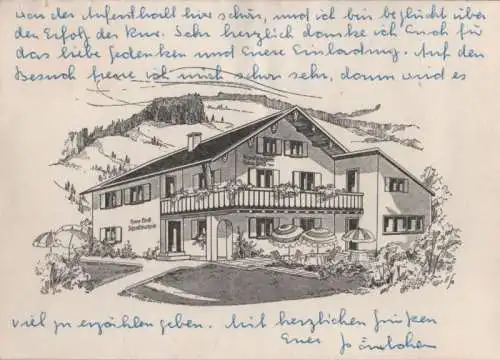 war der Aufenthalt hier schön, und ich bin beglückt über
den Erfolg der Kur. Sehr herzlich danke ich Euch für
das liebe Gedenken und Euere Einladung. Auf den
Besuch freue ich mich schon sehr, dann wird es
viel zu erzählen geben. Mit herzlichen Grüßen
Euer